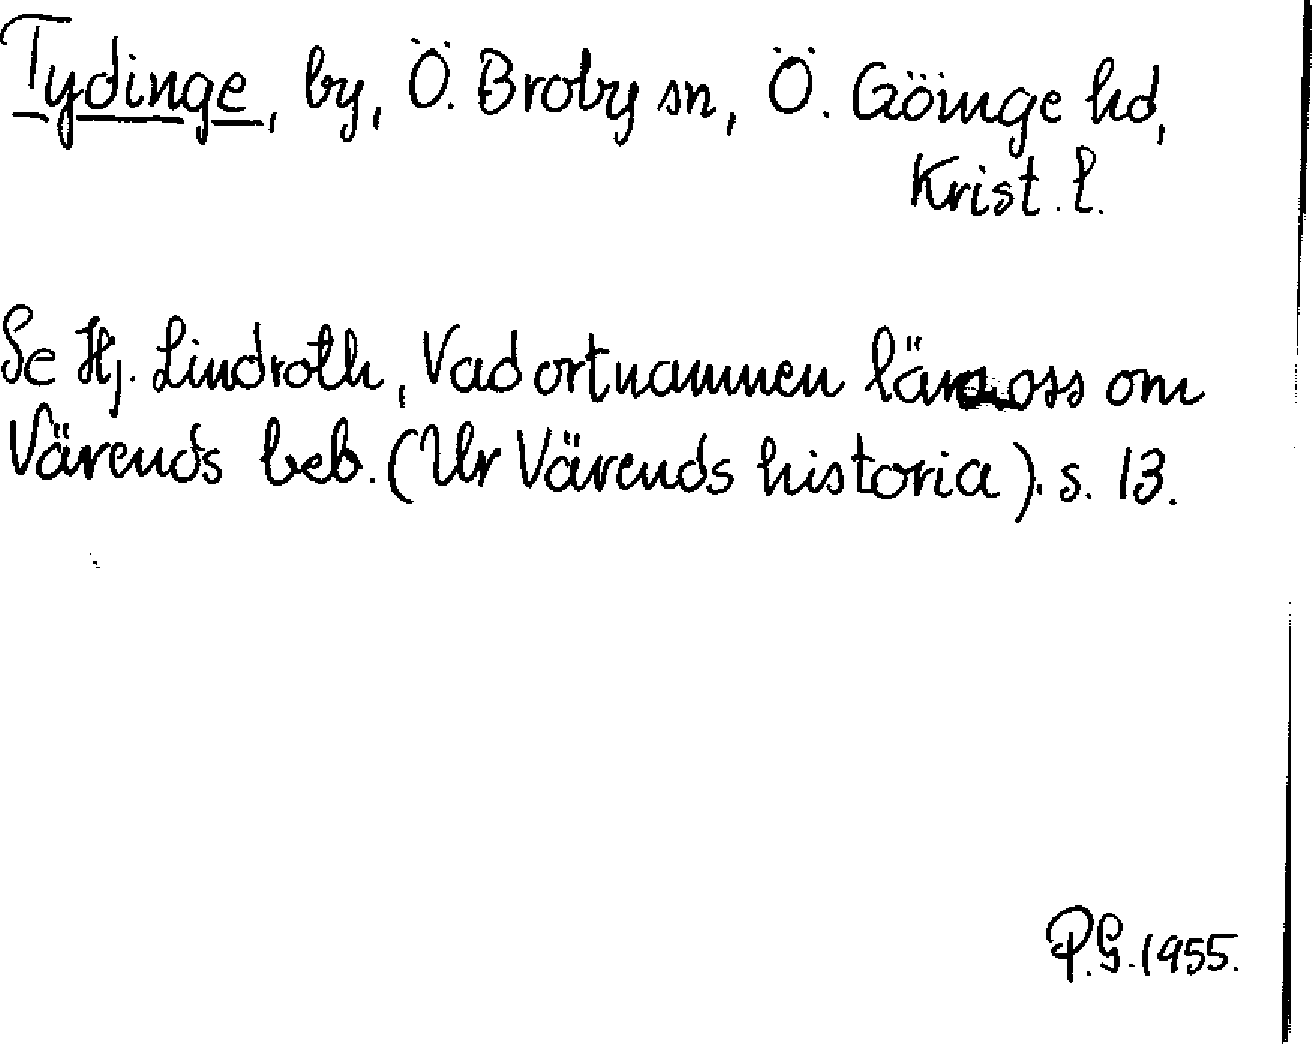 Tydinge, by, Ö. Broby sn, Ö. Göinge hd,
Krist. l.
Se Hj. Lindroth, Vad ortnamnen lära oss om
Värends beb. (Ur Värends historia). s. 13.
P.G. 1955.